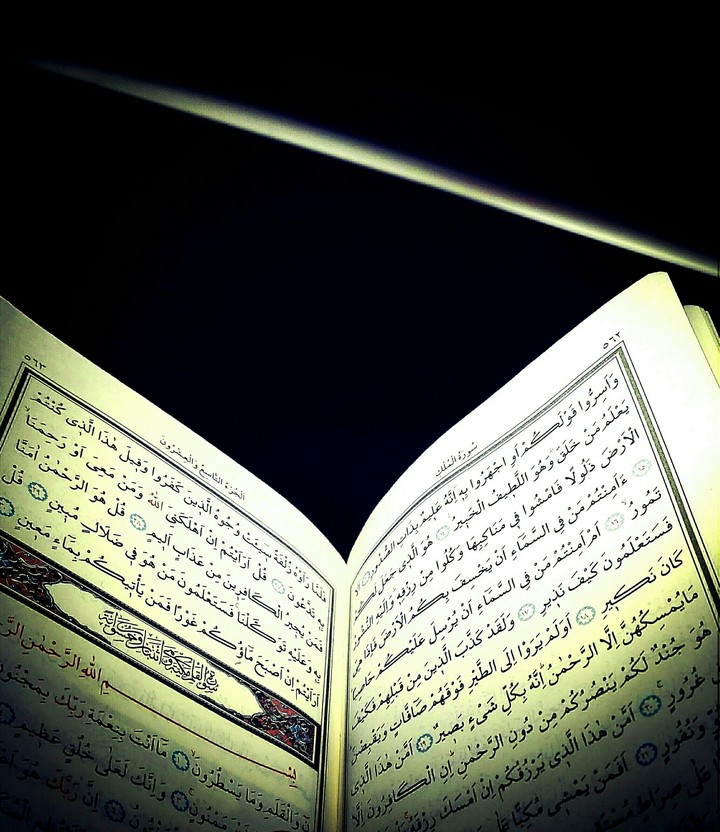 ٥٦٢
سُورَةُ الْمُلْكِ
وَاَسِرُّوا قَوْلَكُمْ اَوِ اجْهَرُوا بِهِ اِنَّهُ عَلِيمٌ بِذَاتِ الصُّدُورِ ﴿١٣﴾ اَلَا
يَعْلَمُ مَنْ خَلَقَ وَهُوَ اللَّطِيفُ الْخَبِيرُ ﴿١٤﴾ هُوَ الَّذِى جَعَلَ لَكُمُ
الْاَرْضَ ذَلُولًا فَامْشُوا فِى مَنَاكِبِهَا وَكُلُوا مِنْ رِزْقِهِ وَاِلَيْهِ النُّشُورُ
﴿١٥﴾ ءَاَمِنْتُمْ مَنْ فِى السَّمَاءِ اَنْ يَخْسِفَ بِكُمُ الْاَرْضَ فَاِذَا هِىَ
تَمُورُ ﴿١٦﴾ اَمْ اَمِنْتُمْ مَنْ فِى السَّمَاءِ اَنْ يُرْسِلَ عَلَيْكُمْ حَاصِبًا
فَسَتَعْلَمُونَ كَيْفَ نَذِيرِ ﴿١٧﴾ وَلَقَدْ كَذَّبَ الَّذِينَ مِنْ قَبْلِهِمْ فَكَيْفَ
كَانَ نَكِيرِ ﴿١٨﴾ اَوَلَمْ يَرَوْا اِلَى الطَّيْرِ فَوْقَهُمْ صَافَّاتٍ وَيَقْبِضْنَ
مَا يُمْسِكُهُنَّ اِلَّا الرَّحْمٰنُ اِنَّهُ بِكُلِّ شَىْءٍ بَصِيرٌ ﴿١٩﴾ اَمَّنْ هٰذَا الَّذِى
هُوَ جُنْدٌ لَكُمْ يَنْصُرُكُمْ مِنْ دُونِ الرَّحْمٰنِ اِنِ الْكَافِرُونَ اِلَّا
غُرُورٍ ﴿٢٠﴾ اَمَّنْ هٰذَا الَّذِى يَرْزُقُكُمْ اِنْ اَمْسَكَ رِزْقَهُ
وَنُفُورٍ ﴿٢١﴾ اَفَمَنْ يَمْشِى مُكِبًّا عَلٰى
عَلٰى صِرَاطٍ
٥٦٣
اَلْجُزْءُ التَّاسِعُ وَالْعِشْرُونَ
فَلَمَّا رَاَوْهُ زُلْفَةً سِيئَتْ وُجُوهُ الَّذِينَ كَفَرُوا وَقِيلَ هٰذَا الَّذِى كُنْتُمْ
بِهِ تَدَّعُونَ ﴿٢٧﴾ قُلْ اَرَاَيْتُمْ اِنْ اَهْلَكَنِىَ اللهُ وَمَنْ مَعِىَ اَوْ رَحِمَنَا
فَمَنْ يُجِيرُ الْكَافِرِينَ مِنْ عَذَابٍ اَلِيمٍ ﴿٢٨﴾ قُلْ هُوَ الرَّحْمٰنُ اٰمَنَّا
بِهِ وَعَلَيْهِ تَوَكَّلْنَا فَسَتَعْلَمُونَ مَنْ هُوَ فِى ضَلَالٍ مُبِينٍ ﴿٢٩﴾ قُلْ
اَرَاَيْتُمْ اِنْ اَصْبَحَ مَاؤُكُمْ غَوْرًا فَمَنْ يَاْتِيكُمْ بِمَاءٍ مَعِينٍ ﴿٣٠﴾
بِسْمِ اللهِ الرَّحْمٰنِ الرَّ
وَالْقَلَمِ وَمَا يَسْطُرُونَ ﴿١﴾ مَا اَنْتَ بِنِعْمَةِ رَبِّكَ بِمَجْنُونٍ
مَمْنُونٍ ﴿٣﴾ وَاِنَّكَ لَعَلٰى خُلُقٍ عَظِيمٍ ﴿٤﴾
اِنَّ رَبَّكَ هُوَ